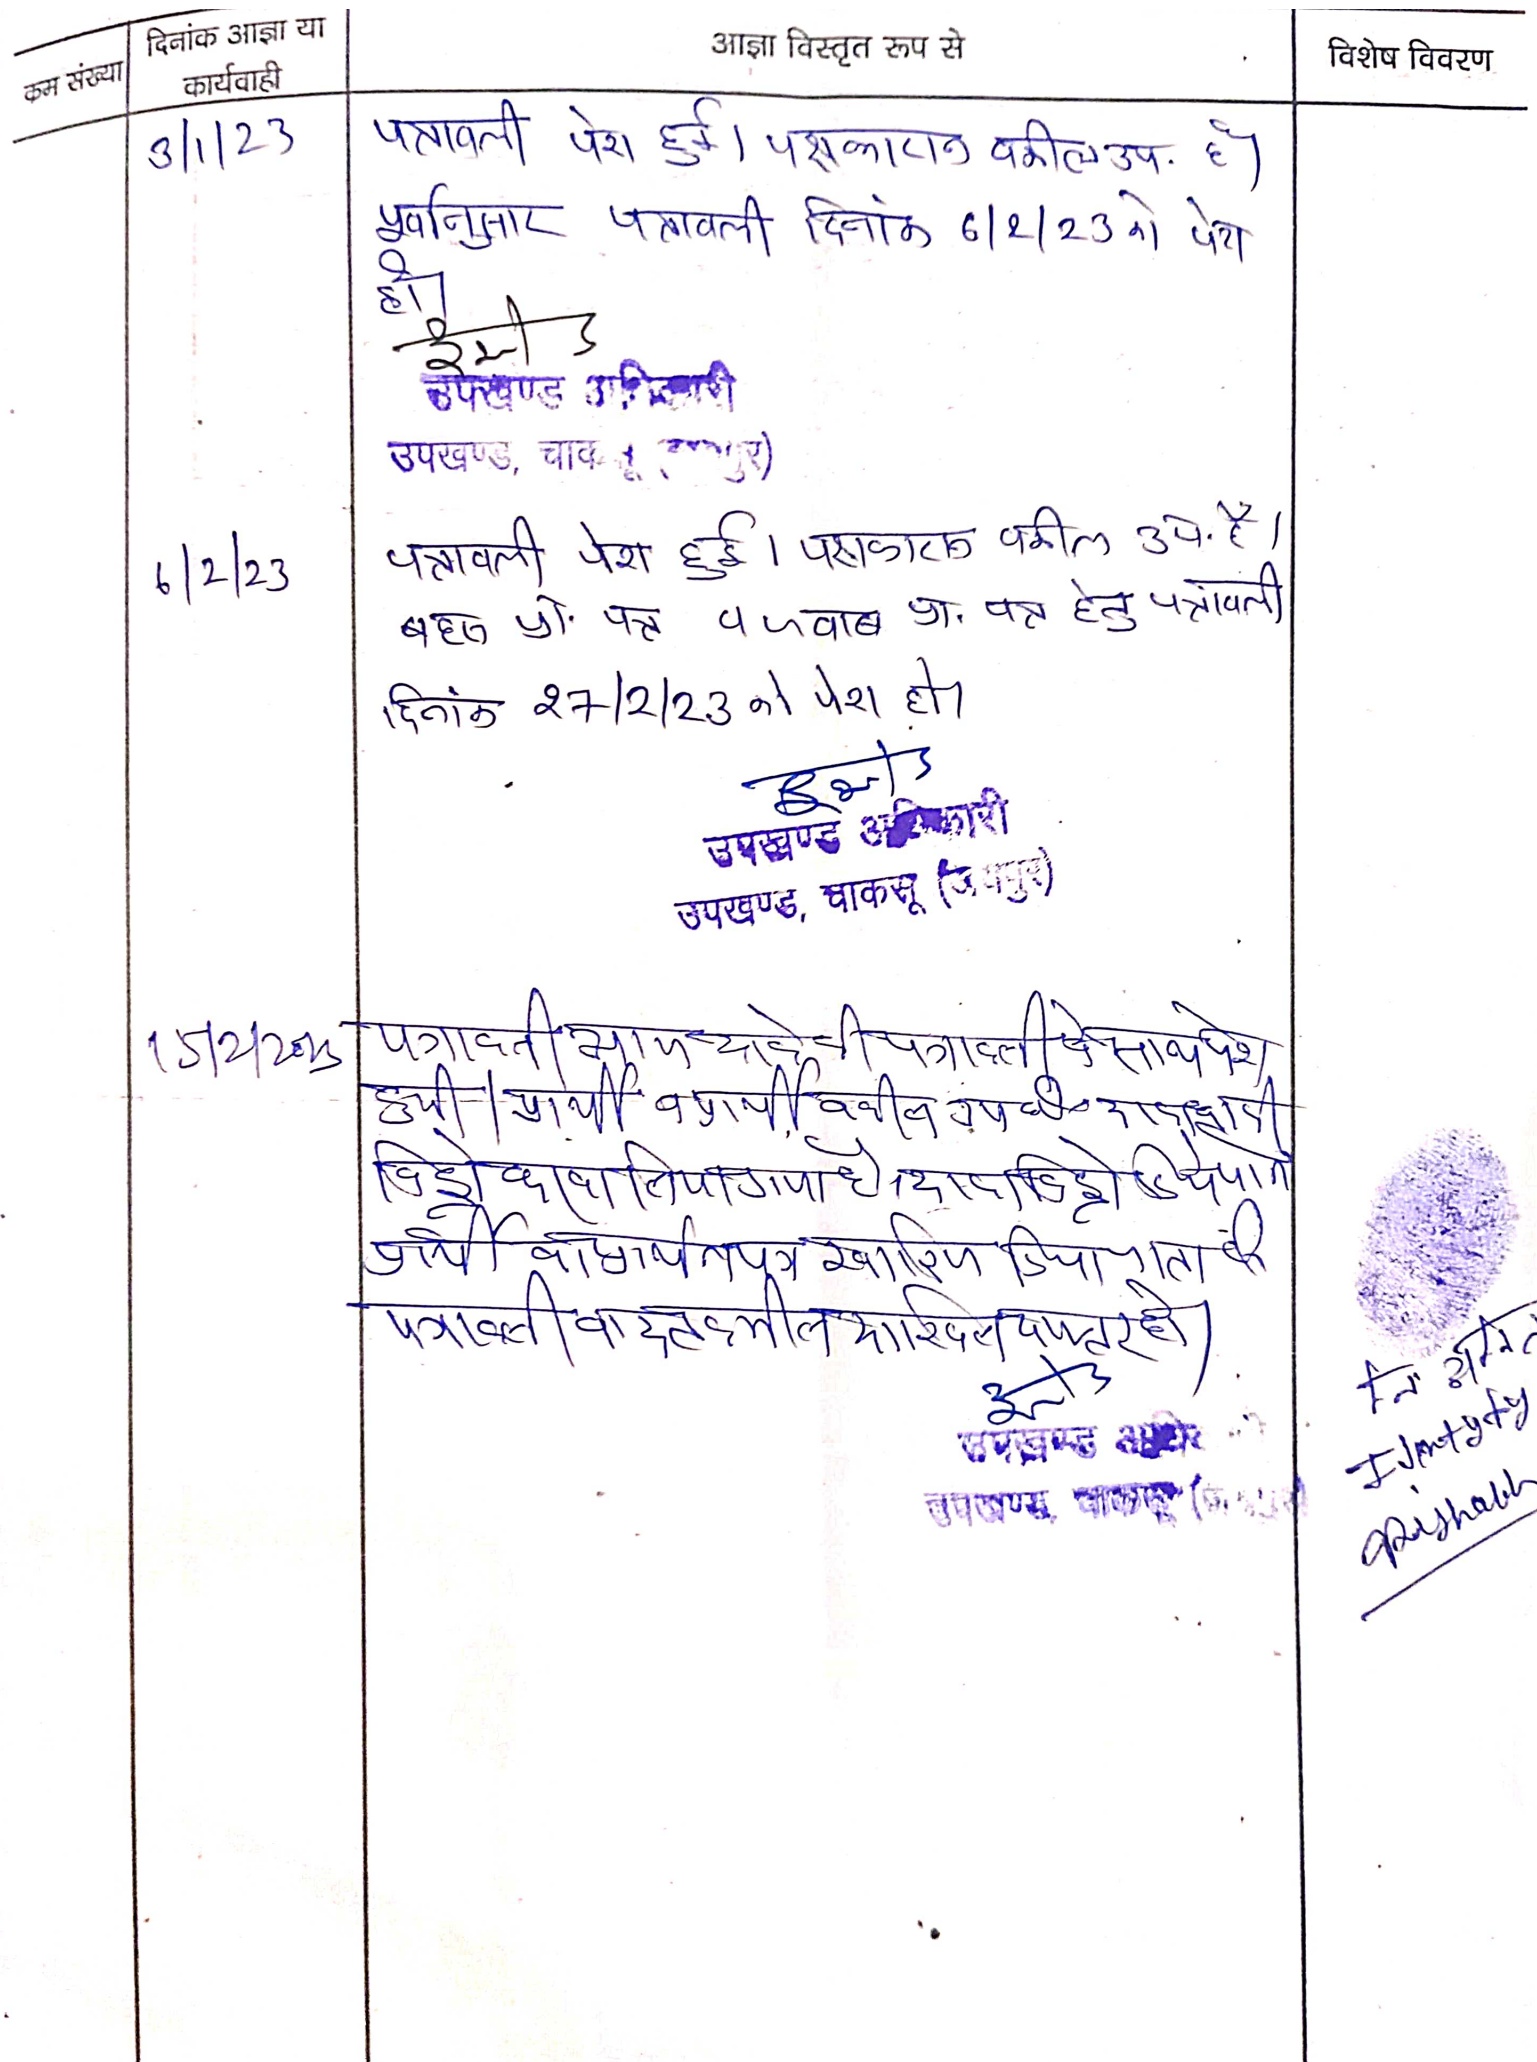 कम संख्या
दिनांक आज्ञा या
कार्यवाही
आज्ञा विस्तृत रूप से
विशेष विवरण
3/1/23
पत्रावली पेश हुई। पक्षकारान वकील उप. है।
पूर्वानुसार पत्रावली दिनांक 6/2/23 को पेश
हो।
उपखण्ड अधिकारी
उपखण्ड, चाकसू (जयपुर)
6/2/23
पत्रावली पेश हुई। पक्षकारान वकील उप. है।
बहस प्रा. पत्र व जवाब प्रा. पत्र हेतु पत्रावली
दिनांक 27/2/23 को पेश हो।
उपखण्ड अधिकारी
उपखण्ड, चाकसू (जयपुर)
15/2/2023
पत्रावली आज पत्रावली के साथ पेश
हुयी। प्रार्थी व प्रार्थी वकील उप
विड्रो किया गया है। दावा विड्रो किये जाने
प्रार्थी का प्रार्थना पत्र खारिज किया जाता है
पत्रावली बाद तकमील दाखिल दफ्तर हो।
उपखण्ड
उपखण्ड, चाकसू
नि
Identify
Rishabh